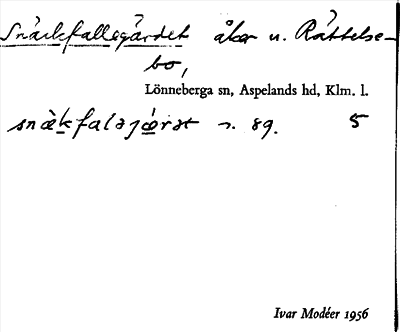 Snäckfallsgärdet åker u. Råttelse-
bo,
Lönneberga sn, Aspelands hd, Klm. l.
snæ̀kfalsjǽrət n. 89. 5
Ivar Modéer 1956